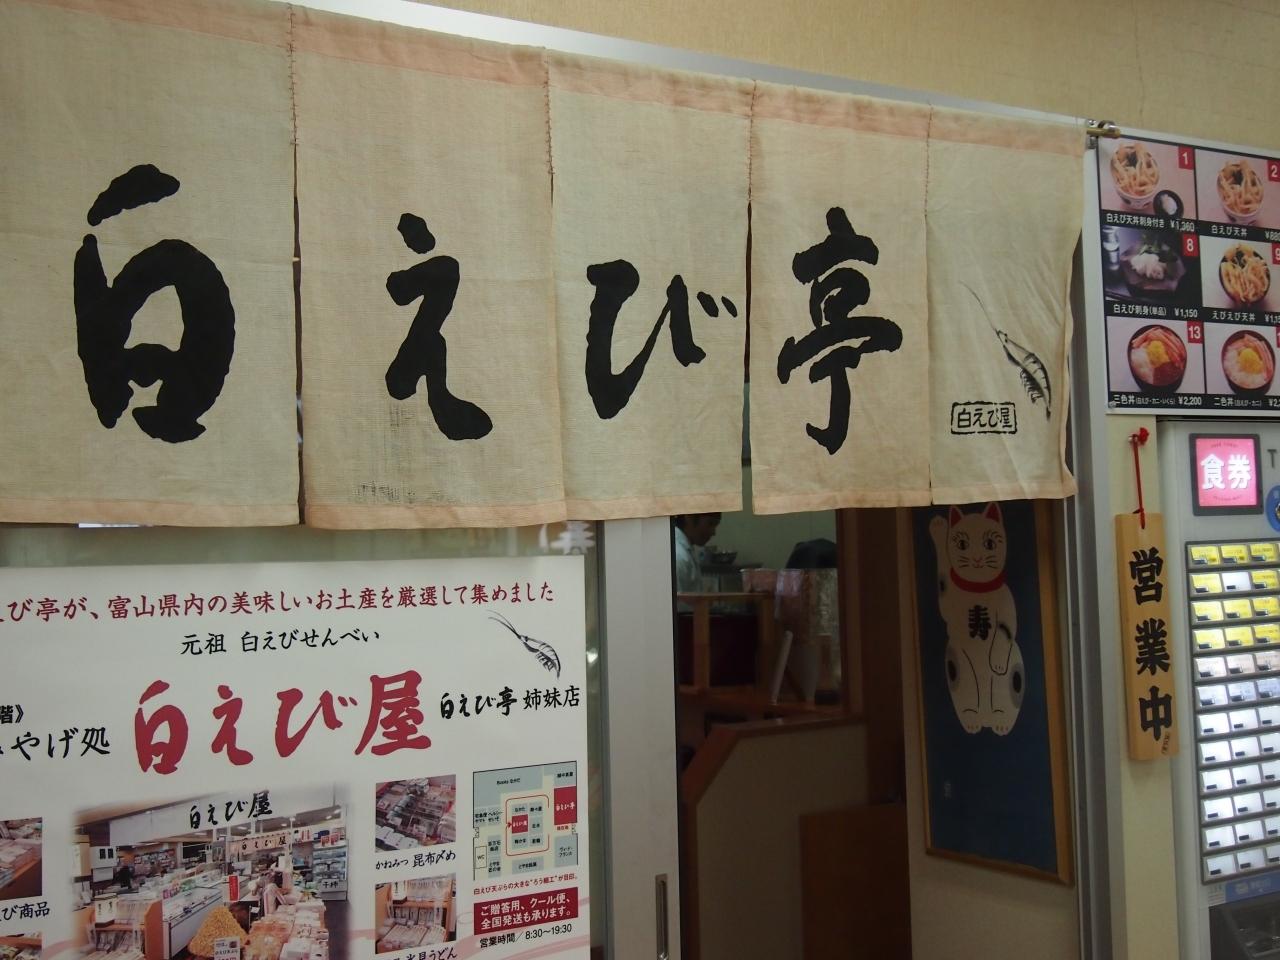 白えび亭
白えび屋
1
白えび天丼刺身付き ¥1,360
2
白えび天丼
8
白えび刺身(単品) ¥1,150
えびえび天丼
13
三色丼(白えび・カニ・いくら) ¥2,200
二色丼(白えび・カニ)
食券
営業中
寿
えび亭が、富山県内の美味しいお土産を厳選して集めました
元祖 白えびせんべい
階》
やげ処
白えび屋
白えび亭 姉妹店
白えび屋
かねみつ 昆布〆め
び商品
氷見うどん
白えび亭
白えび天ぷらの大きな"ろう細工"が目印。
ご贈答用、クール便、
全国発送も承ります。
営業時間/8:30〜19:30